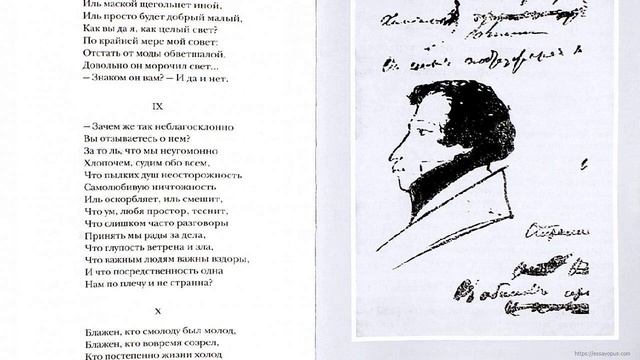 Иль маской щегольнет иной.
Иль просто будет добрый малый,
Как вы да я, как целый свет?
По крайней мере мой совет:
Отстать от моды обветшалой.
Довольно он морочил свет...
— Знаком он вам? — И да и нет.
IX
— Зачем же так неблагосклонно
Вы отзываетесь о нем?
За то ль, что мы неугомонно
Хлопочем, судим обо всем,
Что пылких душ неосторожность
Самолюбивую ничтожность
Иль оскорбляет, иль смешит,
Что ум, любя простор, теснит,
Что слишком часто разговоры
Принять мы рады за дела,
Что глупость ветрена и зла,
Что важным людям важны вздоры,
И что посредственность одна
Нам по плечу и не странна?
X
Блажен, кто смолоду был молод,
Блажен, кто вовремя созрел,
Кто постепенно жизни холод
https://essayopus.com